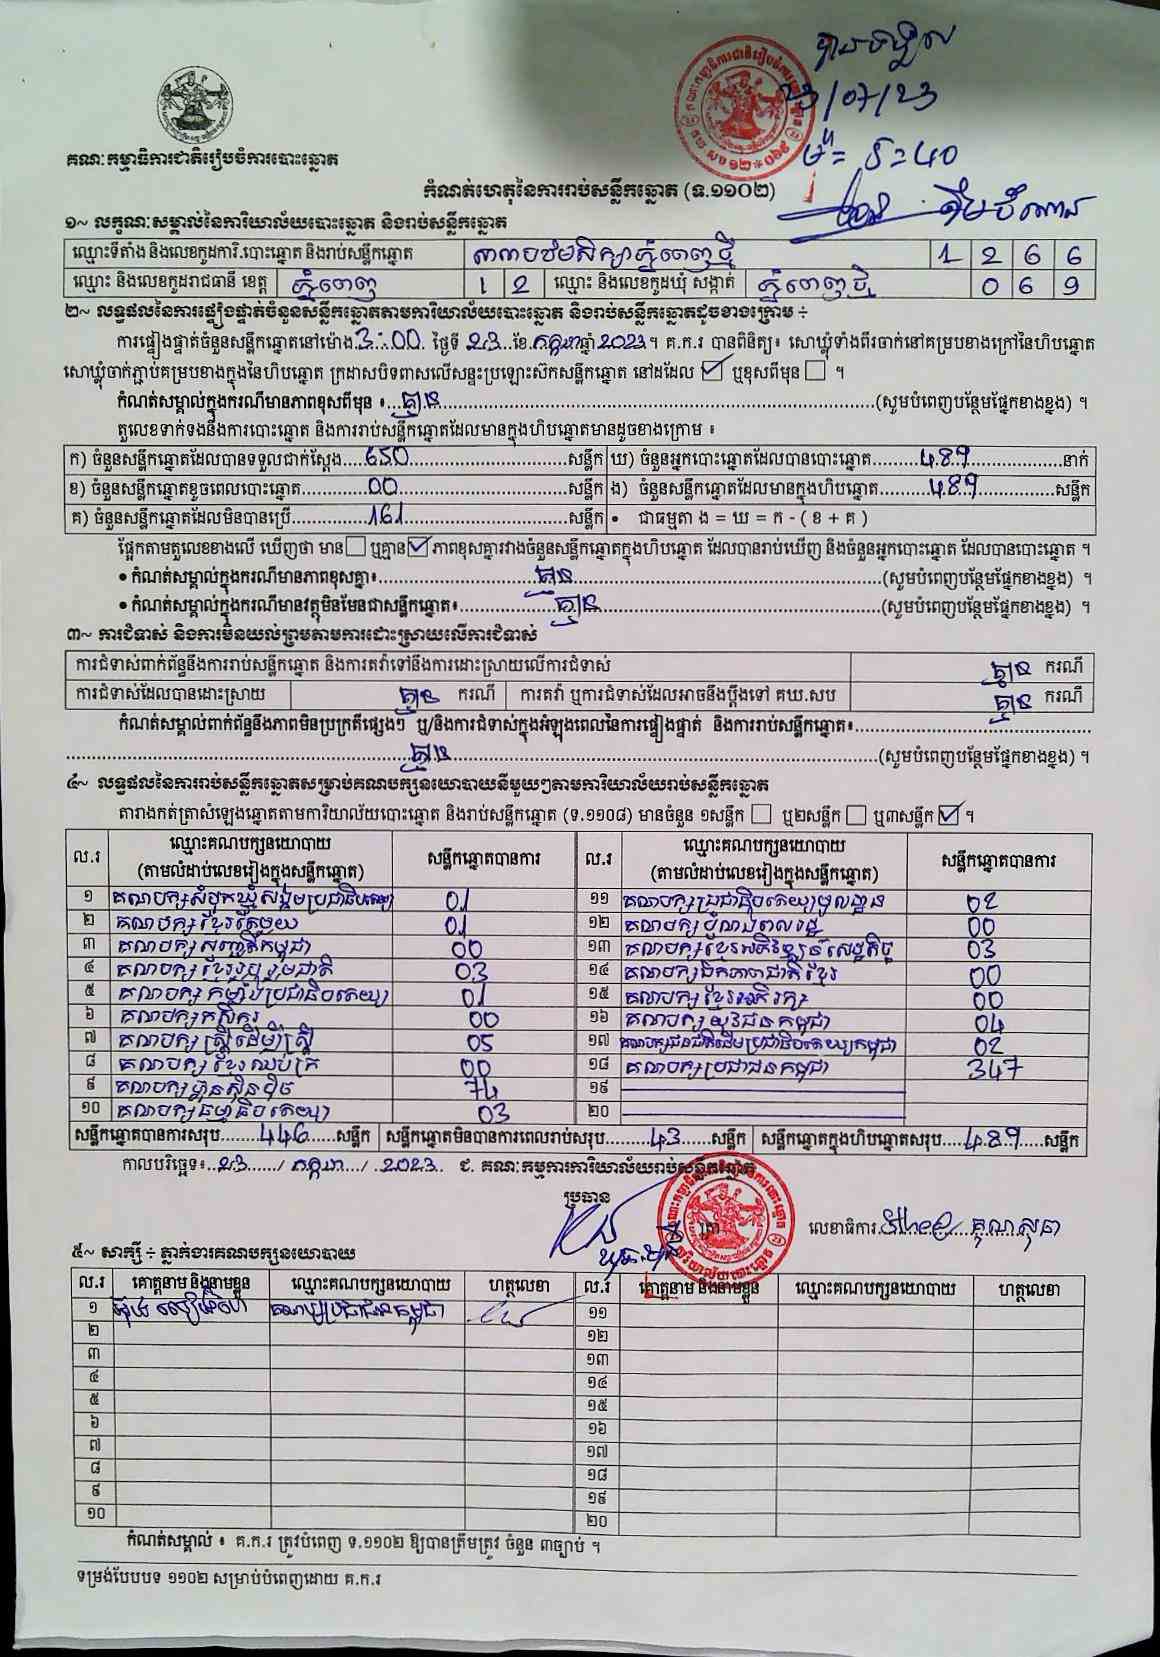 បានទទួល
23/07/23
ម៉ = 5:40
គណៈកម្មាធិការជាតិរៀបចំការបោះឆ្នោត
កំណត់ហេតុនៃការរាប់សន្លឹកឆ្នោត (ទ.១១០២)
១~ លក្ខណៈសម្គាល់នៃការិយាល័យបោះឆ្នោត និងរាប់សន្លឹកឆ្នោត
ឈ្មោះទីតាំង និងលេខកូដការិ.បោះឆ្នោត និងរាប់សន្លឹកឆ្នោត សាលាបឋមសិក្សាភ្នំពេញថ្មី 1 2 6 6
ឈ្មោះ និងលេខកូដរាជធានី ខេត្ត ភ្នំពេញ 1 2 ឈ្មោះ និងលេខកូដឃុំ សង្កាត់ ភ្នំពេញថ្មី 0 6 9
២~ លទ្ធផលនៃការផ្ទៀងផ្ទាត់ចំនួនសន្លឹកឆ្នោតតាមការិយាល័យបោះឆ្នោត និងរាប់សន្លឹកឆ្នោតដូចខាងក្រោម ÷
ការផ្ទៀងផ្ទាត់ចំនួនសន្លឹកឆ្នោតនៅម៉ោង 3:00 ថ្ងៃទី 23 ខែ កក្កដា ឆ្នាំ 2023។ គ.ក.រ បានពិនិត្យ៖ សោឃ្លុំទាំងពីរចាក់នៅគម្របខាងក្រៅនៃហិបឆ្នោត
សោឃ្លុំចាក់ភ្ជាប់គម្របខាងក្នុងនៃហិបឆ្នោត ក្រដាសបិទពាសលើសន្ទះប្រឡោះស៊កសន្លឹកឆ្នោត នៅដដែល ☑ ឬខុសពីមុន ☐ ។
កំណត់សម្គាល់ក្នុងករណីមានភាពខុសពីមុន ៖ គ្មាន (សូមបំពេញបន្ថែមផ្នែកខាងខ្នង) ។
តួលេខទាក់ទងនឹងការបោះឆ្នោត និងការរាប់សន្លឹកឆ្នោតដែលមានក្នុងហិបឆ្នោតមានដូចខាងក្រោម ៖
ក) ចំនួនសន្លឹកឆ្នោតដែលបានទទួលជាក់ស្តែង 650 សន្លឹក ឃ) ចំនួនអ្នកបោះឆ្នោតដែលបានបោះឆ្នោត 489 នាក់
ខ) ចំនួនសន្លឹកឆ្នោតខូចពេលបោះឆ្នោត 00 សន្លឹក ង) ចំនួនសន្លឹកឆ្នោតដែលមានក្នុងហិបឆ្នោត 489 សន្លឹក
គ) ចំនួនសន្លឹកឆ្នោតដែលមិនបានប្រើ 161 សន្លឹក • ជាធម្មតា ង = ឃ = ក - ( ខ + គ )
ផ្អែកតាមតួលេខខាងលើ ឃើញថា មាន ☐ ឬគ្មាន ☑ ភាពខុសគ្នារវាងចំនួនសន្លឹកឆ្នោតក្នុងហិបឆ្នោត ដែលបានរាប់ឃើញ និងចំនួនអ្នកបោះឆ្នោត ដែលបានបោះឆ្នោត ។
• កំណត់សម្គាល់ក្នុងករណីមានភាពខុសគ្នា៖ គ្មាន (សូមបំពេញបន្ថែមផ្នែកខាងខ្នង) ។
• កំណត់សម្គាល់ក្នុងករណីមានវត្ថុមិនមែនជាសន្លឹកឆ្នោត៖ គ្មាន (សូមបំពេញបន្ថែមផ្នែកខាងខ្នង) ។
៣~ ការជំទាស់ និងការមិនយល់ព្រមតាមការដោះស្រាយលើការជំទាស់
ការជំទាស់ពាក់ព័ន្ធនឹងការរាប់សន្លឹកឆ្នោត និងការតវ៉ាទៅនឹងការដោះស្រាយលើការជំទាស់ គ្មាន ករណី
ការជំទាស់ដែលបានដោះស្រាយ គ្មាន ករណី ការតវ៉ា ឬការជំទាស់ដែលអាចនឹងប្តឹងទៅ គឃ.សប គ្មាន ករណី
កំណត់សម្គាល់ពាក់ព័ន្ធនឹងភាពមិនប្រក្រតីផ្សេងៗ ឬ/និងការជំទាស់ក្នុងអំឡុងពេលនៃការផ្ទៀងផ្ទាត់ និងការរាប់សន្លឹកឆ្នោត៖
គ្មាន (សូមបំពេញបន្ថែមផ្នែកខាងខ្នង) ។
៤~ លទ្ធផលនៃការរាប់សន្លឹកឆ្នោតសម្រាប់គណបក្សនយោបាយនីមួយៗតាមការិយាល័យរាប់សន្លឹកឆ្នោត
តារាងកត់ត្រាសំឡេងឆ្នោតតាមការិយាល័យបោះឆ្នោត និងរាប់សន្លឹកឆ្នោត (ទ.១១០៨) មានចំនួន ១សន្លឹក ☐ ឬ២សន្លឹក ☐ ឬ៣សន្លឹក ☑ ។
ល.រ ឈ្មោះគណបក្សនយោបាយ (តាមលំដាប់លេខរៀងក្នុងសន្លឹកឆ្នោត) សន្លឹកឆ្នោតបានការ ល.រ ឈ្មោះគណបក្សនយោបាយ (តាមលំដាប់លេខរៀងក្នុងសន្លឹកឆ្នោត) សន្លឹកឆ្នោតបានការ
១ គណបក្សសំបុកឃ្មុំសង្គមប្រជាធិបតេយ្យ 01 ១១ គណបក្សប្រជាធិបតេយ្យមូលដ្ឋាន 02
២ គណបក្សខ្មែរតែមួយ 01 ១២ គណបក្សបំណងពលរដ្ឋ 00
៣ គណបក្សសញ្ជាតិកម្ពុជា 00 ១៣ គណបក្សខ្មែរអភិវឌ្ឍន៍សេដ្ឋកិច្ច 03
៤ គណបក្សខ្មែររួបរួមជាតិ 03 ១៤ គណបក្សឯកភាពជាតិខ្មែរ 00
៥ គណបក្សកម្លាំងប្រជាធិបតេយ្យ 01 ១៥ គណបក្សខ្មែរអភិរក្ស 00
៦ គណបក្សកសិករ 00 ១៦ គណបក្សយុវជនកម្ពុជា 04
៧ គណបក្សស្ត្រីដើម្បីស្ត្រី 05 ១៧ គណបក្សជនជាតិដើមប្រជាធិបតេយ្យកម្ពុជា 02
៨ គណបក្សខ្មែរឈប់ក្រ 00 ១៨ គណបក្សប្រជាជនកម្ពុជា 347
៩ គណបក្សហ្វ៊ុនស៊ិនប៉ិច 74 ១៩
១០ គណបក្សធម្មាធិបតេយ្យ 03 ២០
សន្លឹកឆ្នោតបានការសរុប 446 សន្លឹក សន្លឹកឆ្នោតមិនបានការពេលរាប់សរុប 43 សន្លឹក សន្លឹកឆ្នោតក្នុងហិបឆ្នោតសរុប 489 សន្លឹក
កាលបរិច្ឆេទ៖ 23 / កក្កដា / 2023 ជ. គណៈកម្មការការិយាល័យរាប់សន្លឹកឆ្នោត
ប្រធាន
ត្រា លេខាធិការ
៥~ សាក្សី ÷ ភ្នាក់ងារគណបក្សនយោបាយ
ល.រ គោត្តនាម និងនាមខ្លួន ឈ្មោះគណបក្សនយោបាយ ហត្ថលេខា ល.រ គោត្តនាម និងនាមខ្លួន ឈ្មោះគណបក្សនយោបាយ ហត្ថលេខា
១ គណបក្សប្រជាជនកម្ពុជា ១១
២ ១២
៣ ១៣
៤ ១៤
៥ ១៥
៦ ១៦
៧ ១៧
៨ ១៨
៩ ១៩
១០ ២០
កំណត់សម្គាល់ ៖ គ.ក.រ ត្រូវបំពេញ ទ.១១០២ ឱ្យបានត្រឹមត្រូវ ចំនួន ៣ច្បាប់ ។
ទម្រង់បែបបទ ១១០២ សម្រាប់បំពេញដោយ គ.ក.រ